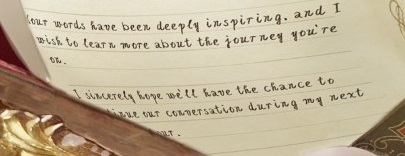 our words have been deeply inspiring, and I
wish to learn more about the journey you're
on.
I sincerely hope we'll have the chance to
our conversation during my next